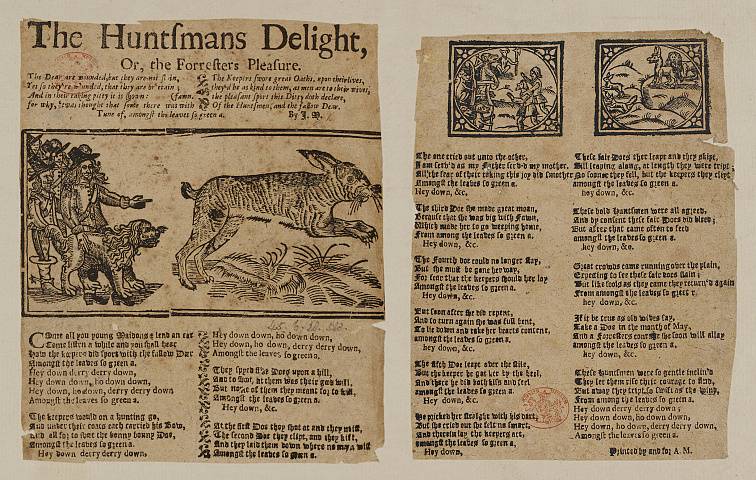 The Huntsmans Delight,
Or, the Forresters Pleasure.
The Dear are wounded, but they are not slain,
Yet so they're wounded, that they are b tain;
And in their taking pitty it is shown:
for why, 'twas thought that some there was with fawn.
The Keepers swore great Oaths, upon their lives,
they'd be as kind to them, as men are to their wives,
the pleasant sport this Ditty doth declare,
Of the Huntsmen, and the fallow Dear.
Tune of, amongst the leaves so green a. By J. M.
COme all you young Maidens & lend an ear
Come listen a while and you shall hear
How the keepers did sport with the fallow Dear
Amongst the leaves so green a.
Hey down derry derry down,
Hey down down, ho down down,
Hey down, ho down, derry derry down
Amongst the leaves so green a.
The keepers would on a hunting go,
And under their coats each carried his Bow,
And all for to shot the bonny bonny Doe,
Amongst the leaves so green a.
Hey down derry derry down,
Hey down down, ho down down,
Hey down, ho down, derry derry down,
Amongst the leaves so green a.
They spyed six Does upon a hill,
And to shot, at them was their good will,
But none of them they meant for to kill,
Amongst the leaves so green a.
Hey down, &c.
At the first Doe they shot at and they mist,
The second Doe they clipt, and they kist,
And they laid them down where no man wist
Amongst the leaves so green a.
The one cried out unto the other,
I am serv'd as my Father serv'd my mother,
All the fear of their taking this joy did smother
Amongst the leaves so green a.
Hey down, &c.
The third Doe she made great moan,
Because that she was big with Fawn,
Which made her to go weeping home,
From among the leaves so green a.
Hey down, &c.
The Fourth doe could no longer stay,
But she must be gone her way,
For fear that the keepers should her slay
Amongst the leaves so green a.
Hey down, &c.
But soon after she did repent,
And to turn again she was full bent,
To lie down and take her hearts content,
amongst the leaves so green a.
Hey down, &c.
The fifth Doe leapt over the stile,
But the keeper he got her by the heel,
And there he did both kiss and feel
amongst the leaves so green a.
Hey down, &c.
He pricked her straight with his dart,
But she cried out she felt no smart,
And therein lay the keepers art,
amongst the leaves so green a.
Hey down,
These fair Does they leapt and they skipt,
Still leaping along, at length they were tript;
No sooner they fell, but the keepers they clipt
amongst the leaves so green a.
hey down, &c.
These bold Huntsmen were all agreed,
And by consent these fair Does did bleed;
But after that came often to feed
amongst the leaves so green a.
hey down, &c.
Great crowds came running over the plain,
Expecting to see these fair does slain;
But like fools as they came they return'd again
From amongst the leaves so green a.
hey down, &c.
If it be true as old wives say,
Take a Doe in the month of May,
And a Forresters courage she soon will allay
amongst the leaves so green a.
hey down, &c.
These huntsmen were so gentle inclin'd
They let them kiss their courage to find,
But away they tript, so swift as the wind,
From among the leaves so green a.
Hey down derry derry down;
Hey down down, ho down down,
Hey down, ho down, derry derry down,
Amongst the leaves so green a.
Printed by and for A. M.